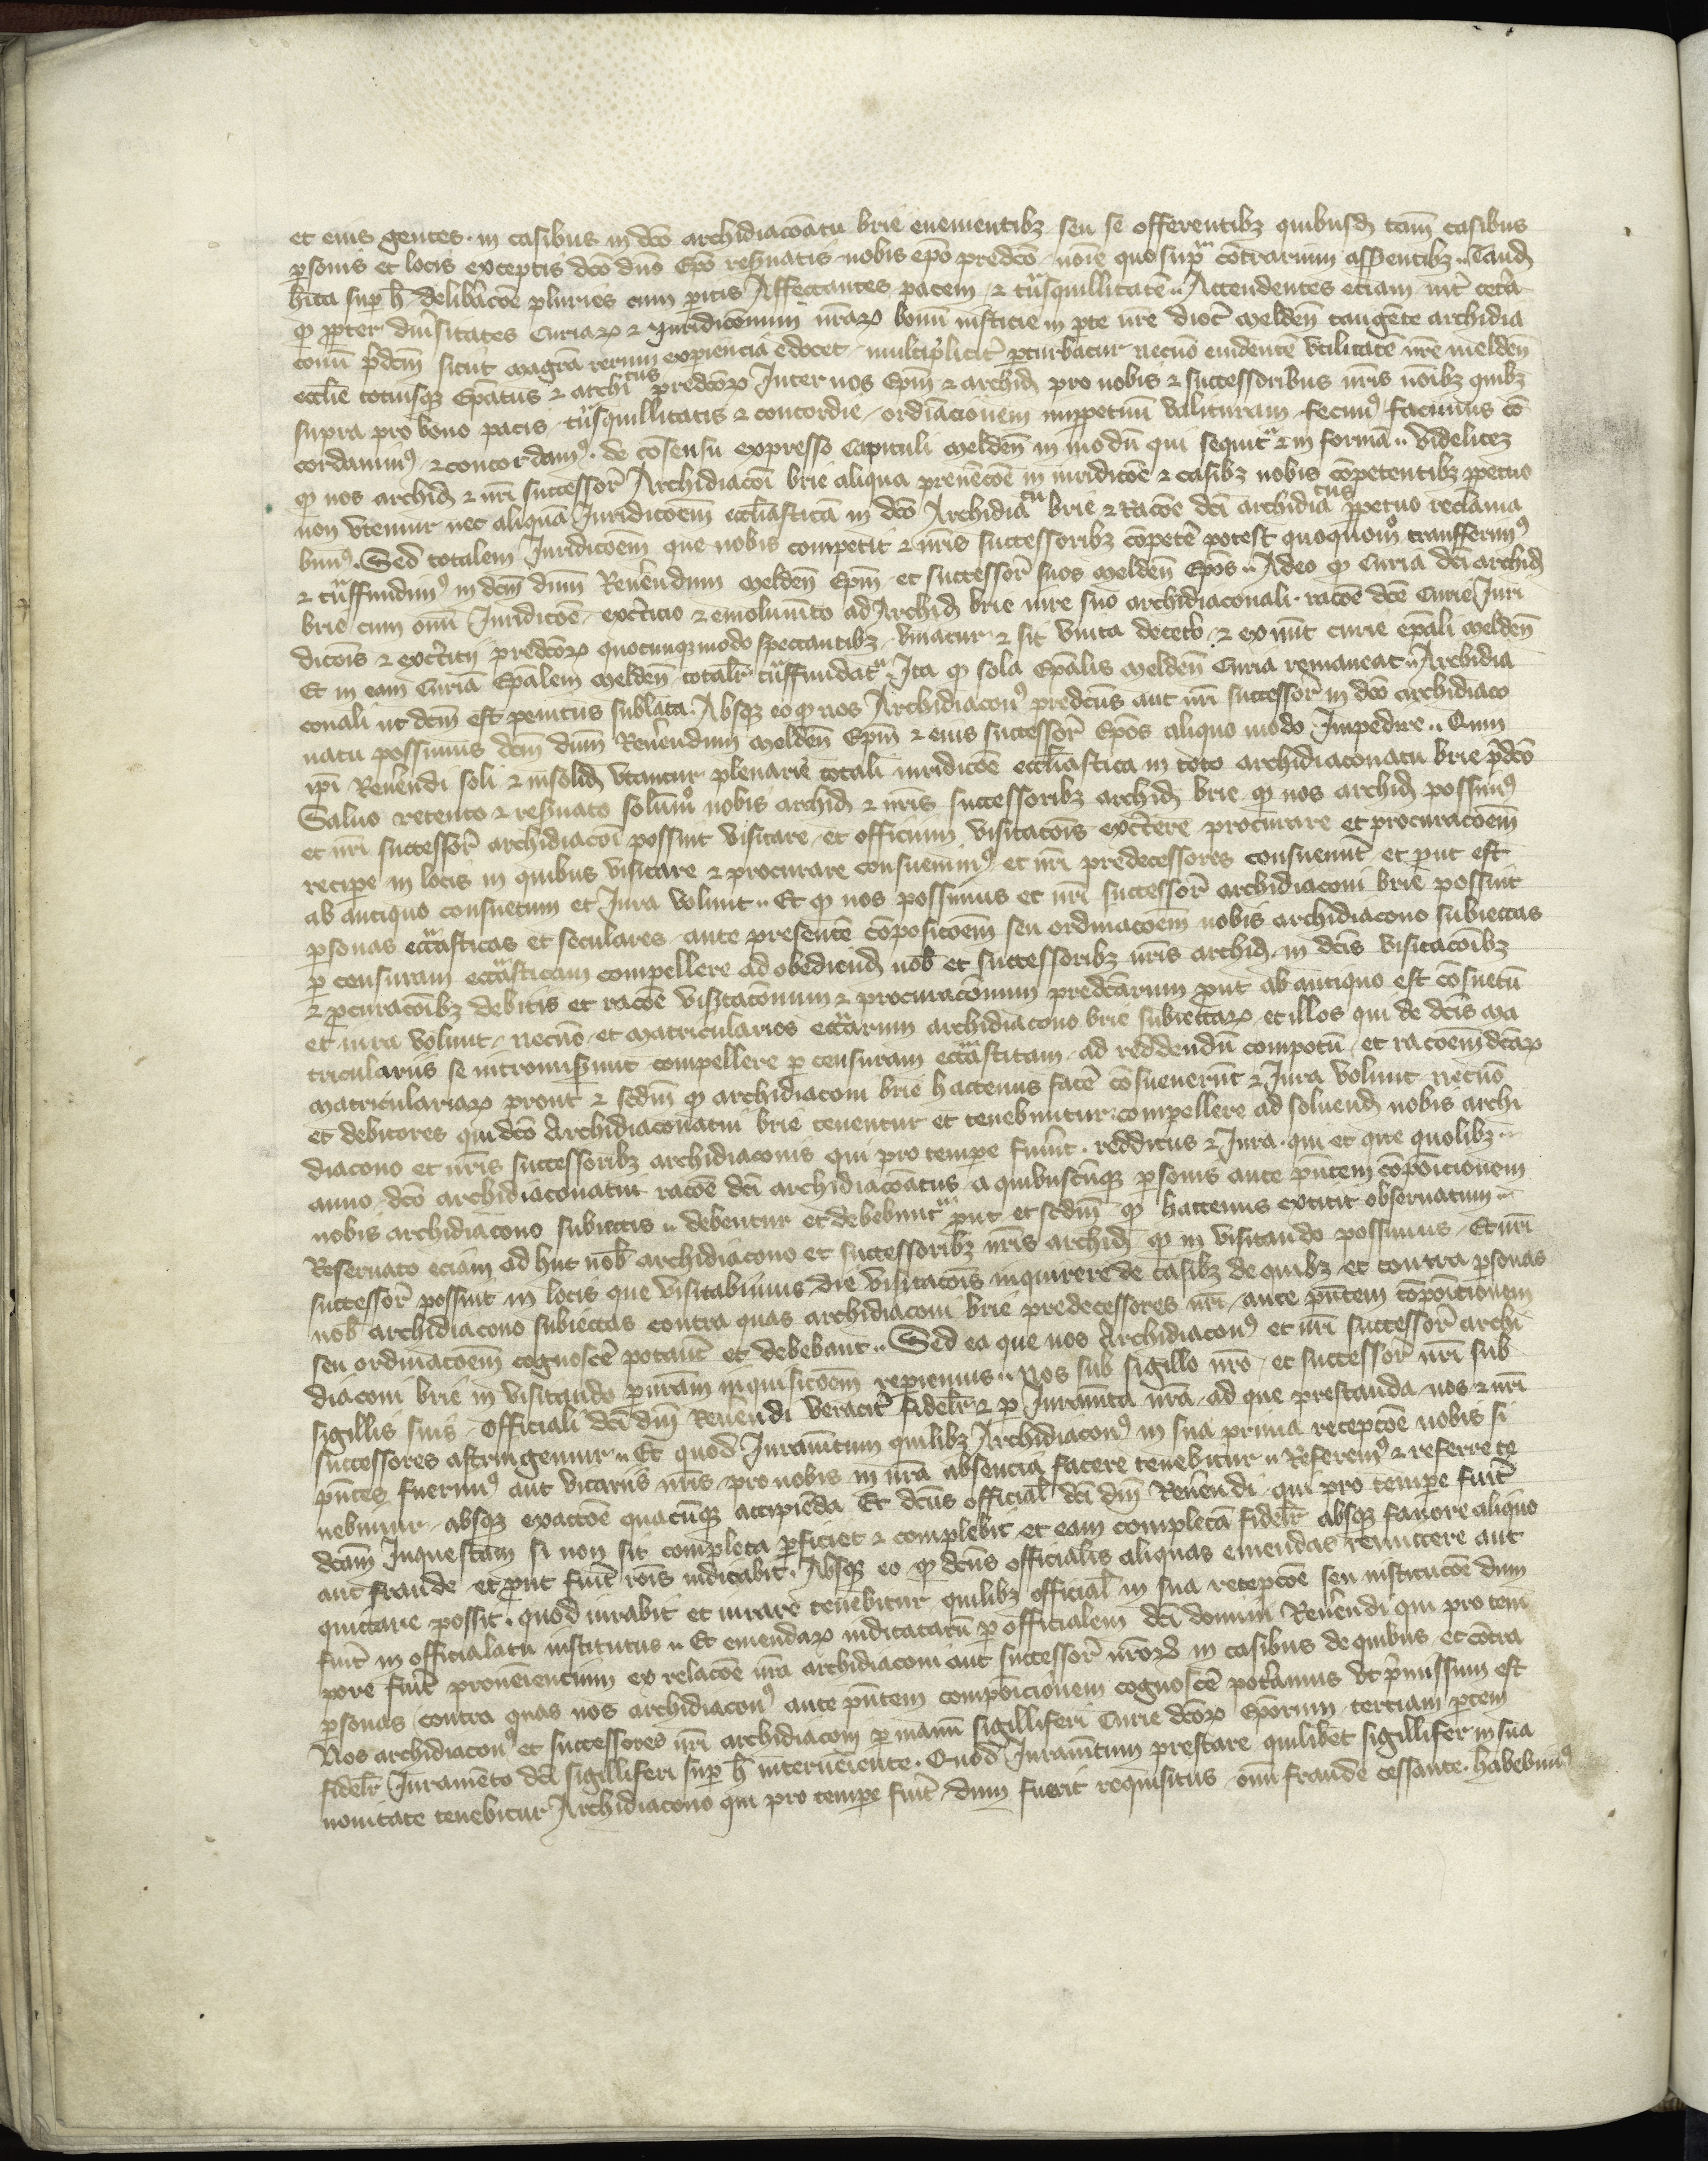 et eius gentes · in casibus in dc̄o archidiacōatu brie eueniētibz seu se offerentibz quibusd̄ tam̄ casibus
ꝑsonis et locis exceptis dc̄o dn̄o Ep̄o reẜuatis nobis ep̄o predc̄o noīe quo supᵃ cōtrarium asserentibz ·· Tand̄
hīta suꝑ h̄ delib̄acōe pluries cum ꝑitis Affectantes pacem ⁊ tᵃnsquillitatē ·· Attendentes etiam int̄ cet̄a
ꝙ ꝓpter diũsitates Curiaꝝ ⁊ Iuridicōnum nr̄aꝝ bonū iusticie in ꝑte nr̄e dioc̄ melden̄ tangēte archidia
conū p̄dcm̄ sicut magr̄a rerum exꝑiencia edocet multiplicit̄ ꝑturbatur necnō euidentē vtilitatē nr̄e melden̄
ecclīe totiusqꝫ Ep̄atus ⁊ archiᵗᵘˢ predc̄oꝝ Inter nos Ep̄m ⁊ archid̄ pro nobis ⁊ successoribus nr̄is nōibz quibz
supra pro bono pacis tᵃnsquillitatis ⁊ concordie ordiacionem imꝑpetuū valituram fecimꝰ facimus cō
cordauimꝰ ⁊ concordamꝰ · de cōsensu expresso Capituli melden̄ in modū qui sequitᵘʳ ⁊ in formā ·· videlicet
ꝙ nos archid̄ ⁊ nr̄i successor̄ Archidiacoī brie aliqua preuēcōe in iuridicōe ⁊ casibz nobis cōpetentibz ꝑpetuo
non vtemur nec aliquā Iuridicōem eccl̄iasticā in dc̄o Archidiaᵗᵘ brie ⁊ racōe dc̄i archidiaᵗᵘˢ ꝑpetuo reclama
bimꝰ · Sed totalem Iuridicōem que nobis competit ⁊ nr̄is successoribz cōpetē potest quoquomᵒ transferimꝰ
⁊ tᵃnsfundimꝰ in dcm̄ dnm̄ Reuerendum melden̄ Ep̄m et successor̄ suos melden̄ Ep̄os ·· Adeo ꝙ Curia dc̄i archid̄
brie cum om̄i Iuridicōe exc̄itio ⁊ emolumēto ad Archid̄ brie iure suo archidiaconali · racōe dc̄e Curie Iuri
dicōis ⁊ exc̄itij predc̄oꝝ quocunqꝫ modo spectantibz vniatur ⁊ sit vnita decet̄o ⁊ ex nūc curie ep̄ali melden̄
Et in eam Curiā Ep̄alem melden̄ total̄r tᵃnsfundatᵘʳ · Ita ꝙ sola Ep̄alis melden̄ Curia remaneat ·· Archidia
conali ut dcm̄ est penitus sublata · Absqꝫ eo ꝙ nos Archidiaconꝰ predc̄us aut nr̄i successor̄ in dc̄o archidiaco
natu possimus dcm̄ dnm̄ Reuerendum melden̄ Ep̄m ⁊ eius successor̄ Ep̄os aliquo modo Impedire ·· Quin
ip̄i Reuerendi soli ⁊ insolid̄ vtantur plenarie totali iuridicōe eccl̄iastica in toto archidiaconatu brie p̄dc̄o
Saluo retento ⁊ reẜuato solūmᵒ nobis archid̄ ⁊ nr̄is successoribz archid̄ brie ꝙ nos archid̄ possimꝰ
et nr̄i successor̄ archidiacoī possint visitare et officium visitacōis exc̄ere procurare et procuracōem
reciꝑe in locis in quibus visitare ⁊ procurare consueuimꝰ et nr̄i predecessores consueuer̄t et ꝓut est
ab antiquo consuetum et Iura volunt ·· Et ꝙ nos possimus et nr̄i successor̄ archidiaconi brie possint
ꝑsonas eccᵃsticas et seculares ante presentē cōposicōem seu ordinacōem nobis archidiacono subiectas
ꝑ censuram eccᵃsticam compellere ad obediend̄ nob̄ et successoribz nr̄is archid̄ in dc̄is visitacōibz
⁊ ꝓcuracōibz debitis et racōe visitacōnum ⁊ procuracōnum predc̄arum ꝓut ab antiquo est cōsuetū
et iura volunt necnō et matricularios eccᵃrum archidiacono brie subiectaꝝ et illos qui de dc̄is ma
triculariis se intromiserunt compellere ꝑ censuram eccᵃsticam ad reddendū compotū et racōem dc̄aꝝ
matriculariaꝝ prout ⁊ scdm̄ ꝙ archidiaconi brie hactenus facē cōsueuerūt ⁊ Iura volunt necnō
et debitores qui dc̄o Archidiaconatui brie tenentur et tenebuntur compellere ad soluend̄ nobis archi
diacono et nr̄is successoribz archidiaconis qui pro tempe fuer̄t · redditus ⁊ Iura · qui et que quolibz
anno dc̄o archidiaconatui racōe dc̄i archidiacōatus a quibuscūqꝫ ꝑsonis ante pn̄tem cōpoīcionem
nobis archidiacono subiectis ·· debentur et debebuntᵘʳ ꝓut et scdm̄ ꝙ hactenus extitit obseruatum ··
Reseruato eciam ad huc nob̄ archidiacono et successoribz nr̄is archid̄ ꝙ in visitando possimus Et nr̄i
successor̄ possint in locis que visitabimus die visitacōis inquirere de casibz de quibz et contra ꝑsonas
nob̄ archidiacono subiectas contra quas archidiaconi brie predecessores nr̄i ante pn̄tem cōpoīcionem
seu ordinacōem cognoscē poterāt et debebant ·· Sed ea que nos Archidiaconꝰ et nr̄i successor̄ archi
diaconi brie in visitando ꝑ nr̄am inquisicōem reꝑiemus ·· Nos sub sigillo nr̄o et successor̄ nr̄i sub
sigillis suis Officiali dc̄i dn̄i Reuerendi veracit̄ fidel̄r ⁊ ꝑ Iuramēta nr̄a ad que prestanda nos ⁊ nr̄i
successores astringemur ·· Et quod Iuramētum quilibz Archidiaconꝰ in sua prima recepcōe nobis si
pn̄tes fuerimꝰ aut vicariis nr̄is pro nobis in nr̄a absencia facere tenebitur ·· Referemꝰ ⁊ referre te
nebimur absqꝫ exaccōe quacūqꝫ accipiēda Et dc̄us official̄ dc̄i dn̄i Reuerendi qui pro tempe fuer̄it
dc̄am Inquestam si non sit completa ꝑficiet ⁊ complebit et eam completā fidel̄r absqꝫ fauore aliquo
aut fraude et ꝓut fuer̄it rōis iudicabit · Absqꝫ eo ꝙ dc̄us officialis aliquas emendas remittere aut
quittare possit · quod iurabit et iurare tenebitur quilibz official̄ in sua recepcōe seu institucōe dum
fuer̄it in officialatu institutus ·· Et emendaꝝ iudicatarū ꝑ officialem dc̄i domini Reuerendi qui pro tem
pore fuer̄it proueniencium ex relacōe nr̄a archidiaconi aut successor̄ nr̄oꝝ in casibus de quibus et cōtra
ꝑsonas contra quas nos archidiaconꝰ ante pn̄tem compoīcionem cognoscē poteramus vt p̄missum est
Nos archidiaconꝰ et successores nr̄i archidiaconi ꝑ manū sigilliferi Curie dc̄oꝝ Ep̄orum tertiam ꝑtem
fidel̄r Iuramēto dc̄i sigilliferi suꝑ h̄ interueniente · Quod Iuramētum prestare quilibet sigillifer in sua
nouitate tenebitur Archidiacono qui pro tempe fuer̄it dum fuerit requisitus om̄i fraude cessante · habebimꝰ